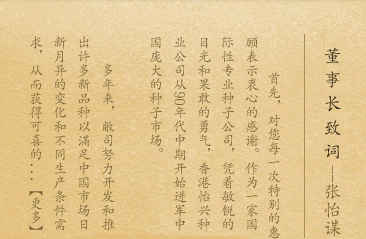 董事长致词—张怡谋
首先，对您每一次特别的惠
顾表示衷心的感谢。作为一家国
际性专业种子公司，凭着敏锐的
目光和果敢的勇气。香港怡兴种
业公司从90年代中期开始进军中
国庞大的种子市场。
多年来，敝司努力开发和推
出许多新品种以满足中国市场日
新月异的变化和不同生产条件需
求，从而获得可喜的...【更多】